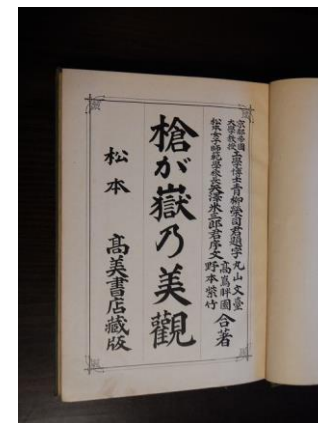 京都帝國大學教授 工學博士青柳榮司君題字
松本女子師範學校長矢澤米三郎君序文
丸山文臺
高嶌胖園
野本紫竹
合著
槍が嶽乃美觀
松本 髙美書店藏版